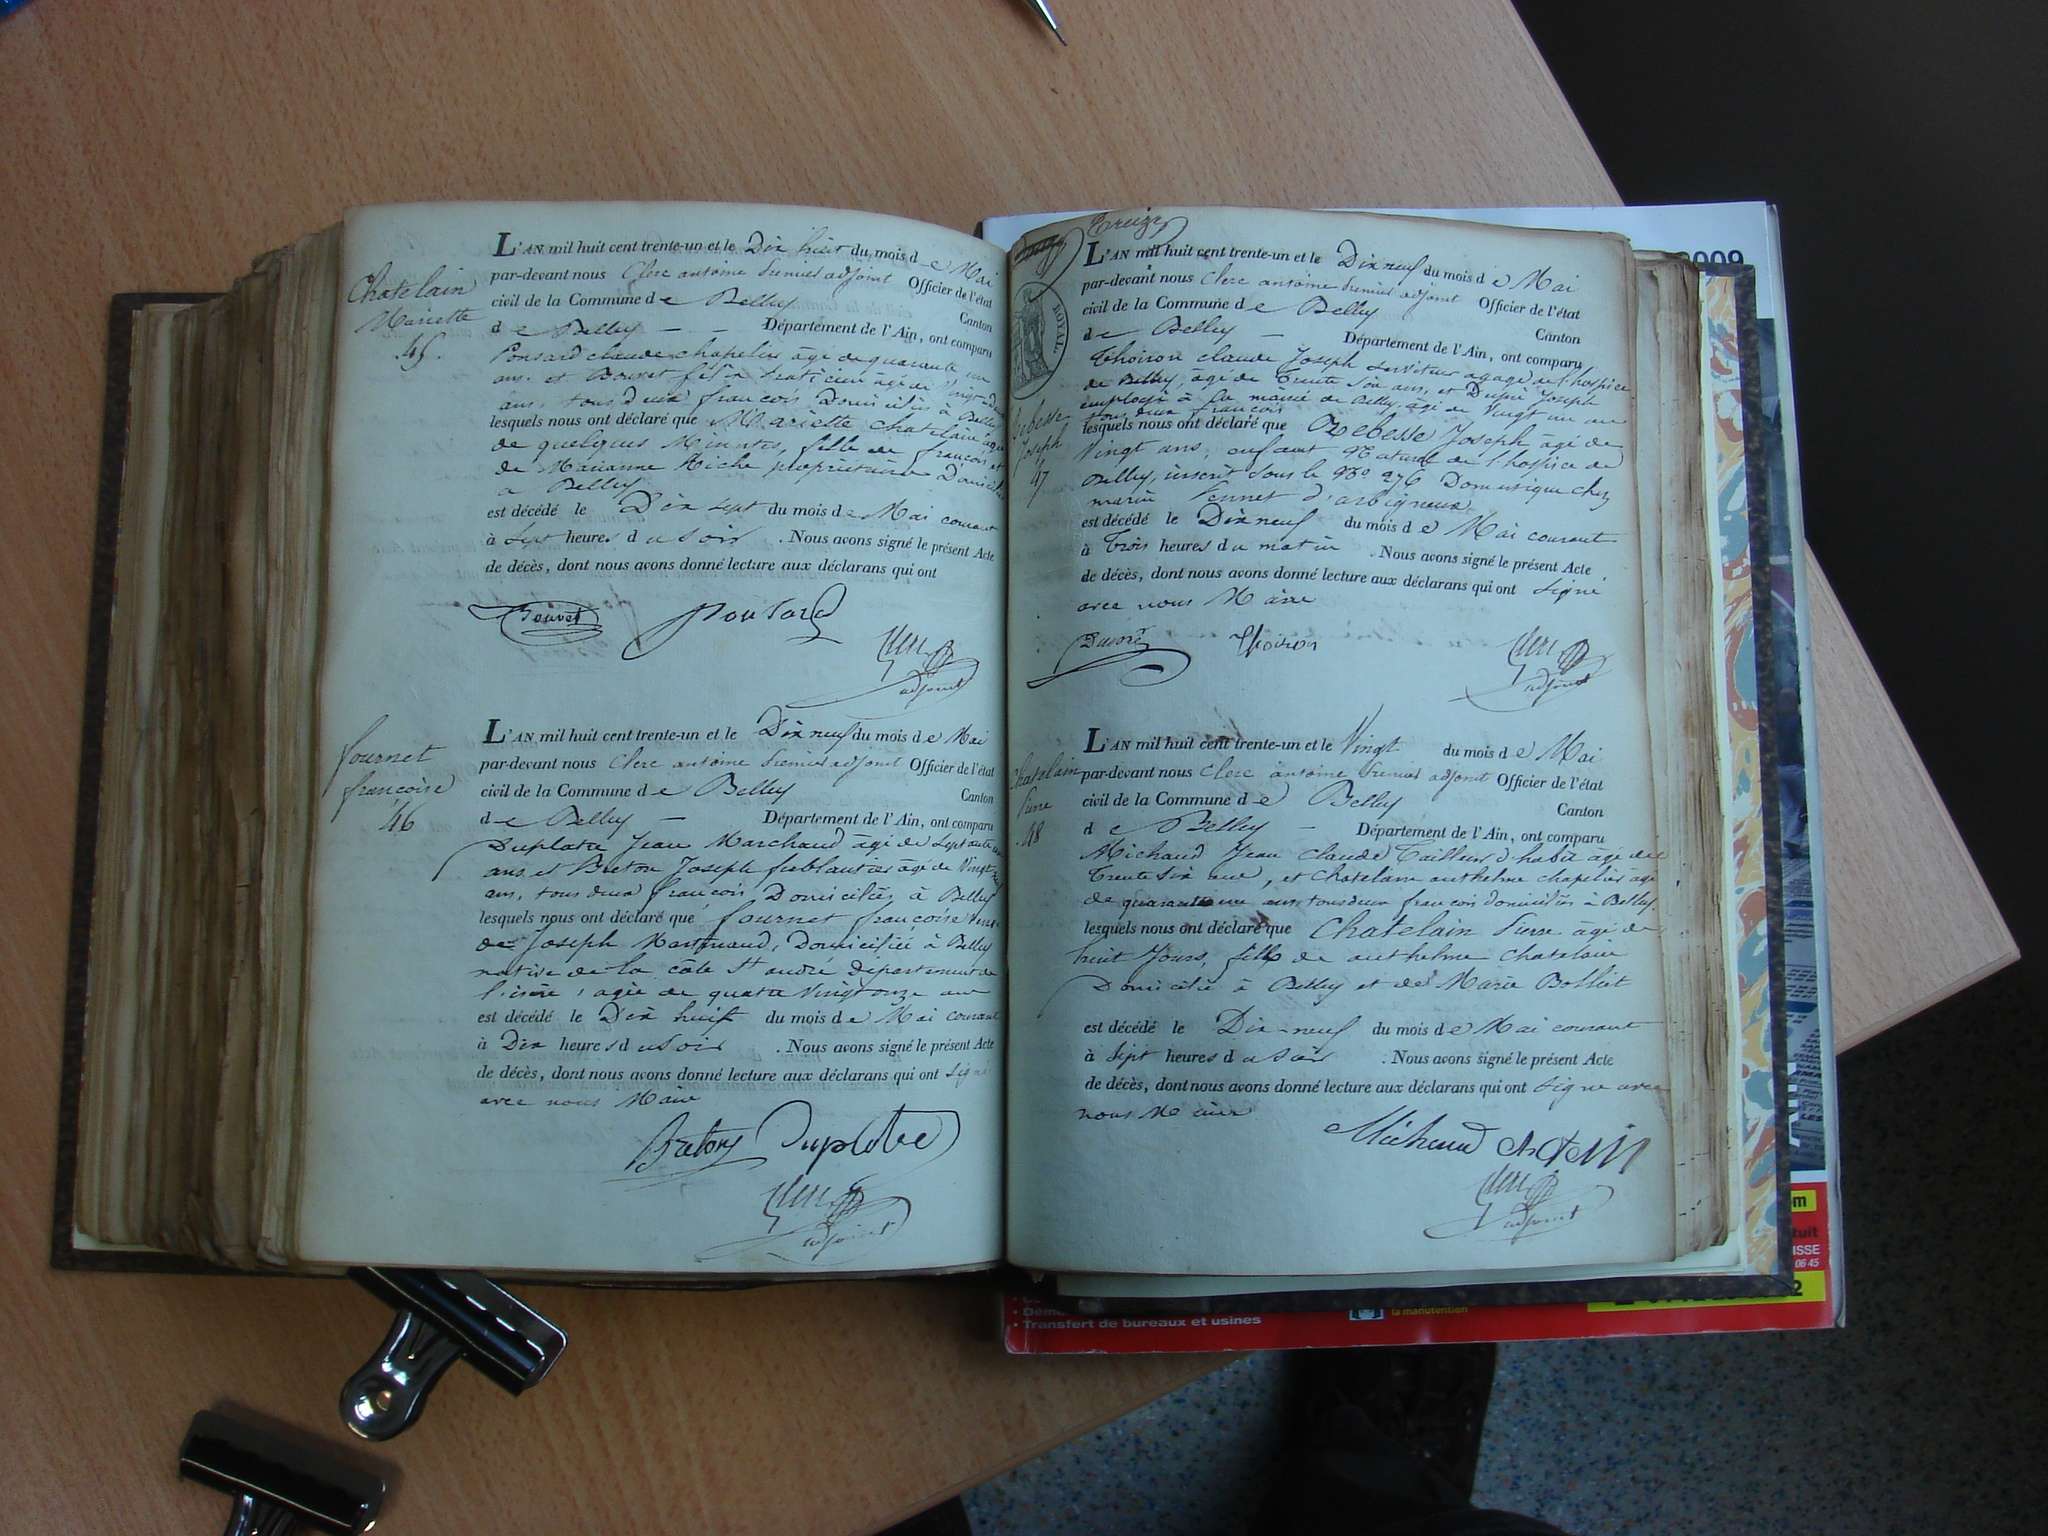 Chatelain
Mariette
45.
L'AN mil huit cent trente-un et le Dix huit du mois de Mai
par-devant nous Clerc antoine Premier adjoint Officier de l'état
civil de la Commune de Belley Canton
de Belley — — Département de l'Ain, ont comparu
Ponsard claude chapelier âgé de quarante un
ans et Bouvet félix Praticien âgé de Vingt
ans, tous deux françois Domiciliés à Belley
lesquels nous ont déclaré que Mariette chatelain âgée
de quelques Minutes, fille de françois et
de Marianne Riche propriétaire Domiciliés
a Belley
est décédé le Dix sept du mois de Mai courant
à Sept heures du Soir . Nous avons signé le présent Acte
de décès, dont nous avons donné lecture aux déclarans qui ont
Bouvet Ponsard
Clerc
adjoint
fournet
françoise
46
L'AN mil huit cent trente-un et le Dix neuf du mois de Mai
par-devant nous Clerc antoine Premier adjoint Officier de l'état
civil de la Commune de Belley Canton
de Belley — Département de l'Ain, ont comparu
Duplatre Jean Marchand âgé de Septante un
ans, et Breton Joseph ferblantier âgé de Vingt
ans, tous deux françois Domiciliés à Belley
lesquels nous ont déclaré que fournet françoise Veuve
de Joseph Domiciliée à Belley
native de la côte St andré Département de
l'isère, agée de quatre Vingt onze ans
est décédé le Dix huit du mois de Mai courant
à Dix heures du Soir . Nous avons signé le présent Acte
de décès, dont nous avons donné lecture aux déclarans qui ont signé
avec nous Maire
Breton Duplatre
Clerc
adjoint
Treize
ROYAL
Rebesse
Joseph
47
L'AN mil huit cent trente-un et le Dix neuf du mois de Mai
par-devant nous Clerc antoine Premier adjoint Officier de l'état
civil de la Commune de Belley Canton
de Belley — Département de l'Ain, ont comparu
Thoiron claude Joseph Serviteur agagé de l'hospice
de Belley, âgé de Trente Six ans, et Dupré Joseph
employé à la mairie de Belley, âgé de Vingt un ans
tous deux françois
lesquels nous ont déclaré que Rebesse Joseph âgé de
Vingt ans, enfant Naturel de l'hospice de
Belley, inscrit Sous le No 276 Domestique chez
marin Vennet d'arbigneux
est décédé le Dix neuf du mois de Mai courant
à Trois heures du matin . Nous avons signé le présent Acte
de décès, dont nous avons donné lecture aux déclarans qui ont Signé
avec nous Maire
Dupré Thoiron
Clerc
adjoint
Chatelain
Pierre
48
L'AN mil huit cent trente-un et le Vingt du mois de Mai
par-devant nous Clerc antoine Premier adjoint Officier de l'état
civil de la Commune de Belley Canton
de Belley — Département de l'Ain, ont comparu
Michaud Jean claude Tailleur d'habit âgé de
Trente Six ans, et Chatelain anthelme chapelier âgé
de quarante un ans tous deux françois domiciliés à Belley.
lesquels nous ont déclaré que Chatelain Pierre âgé de
huit Jours, fils de anthelme chatelain
Domicilié à Belley et de Marie Bolliet
est décédé le Dix-neuf du mois de Mai courant
à Sept heures du Soir . Nous avons signé le présent Acte
de décès, dont nous avons donné lecture aux déclarans qui ont Signé avec
nous Maire
Michaud
Clerc
adjoint
2009
ISSE
06 45
la manutention
• Transfert de bureaux et usines